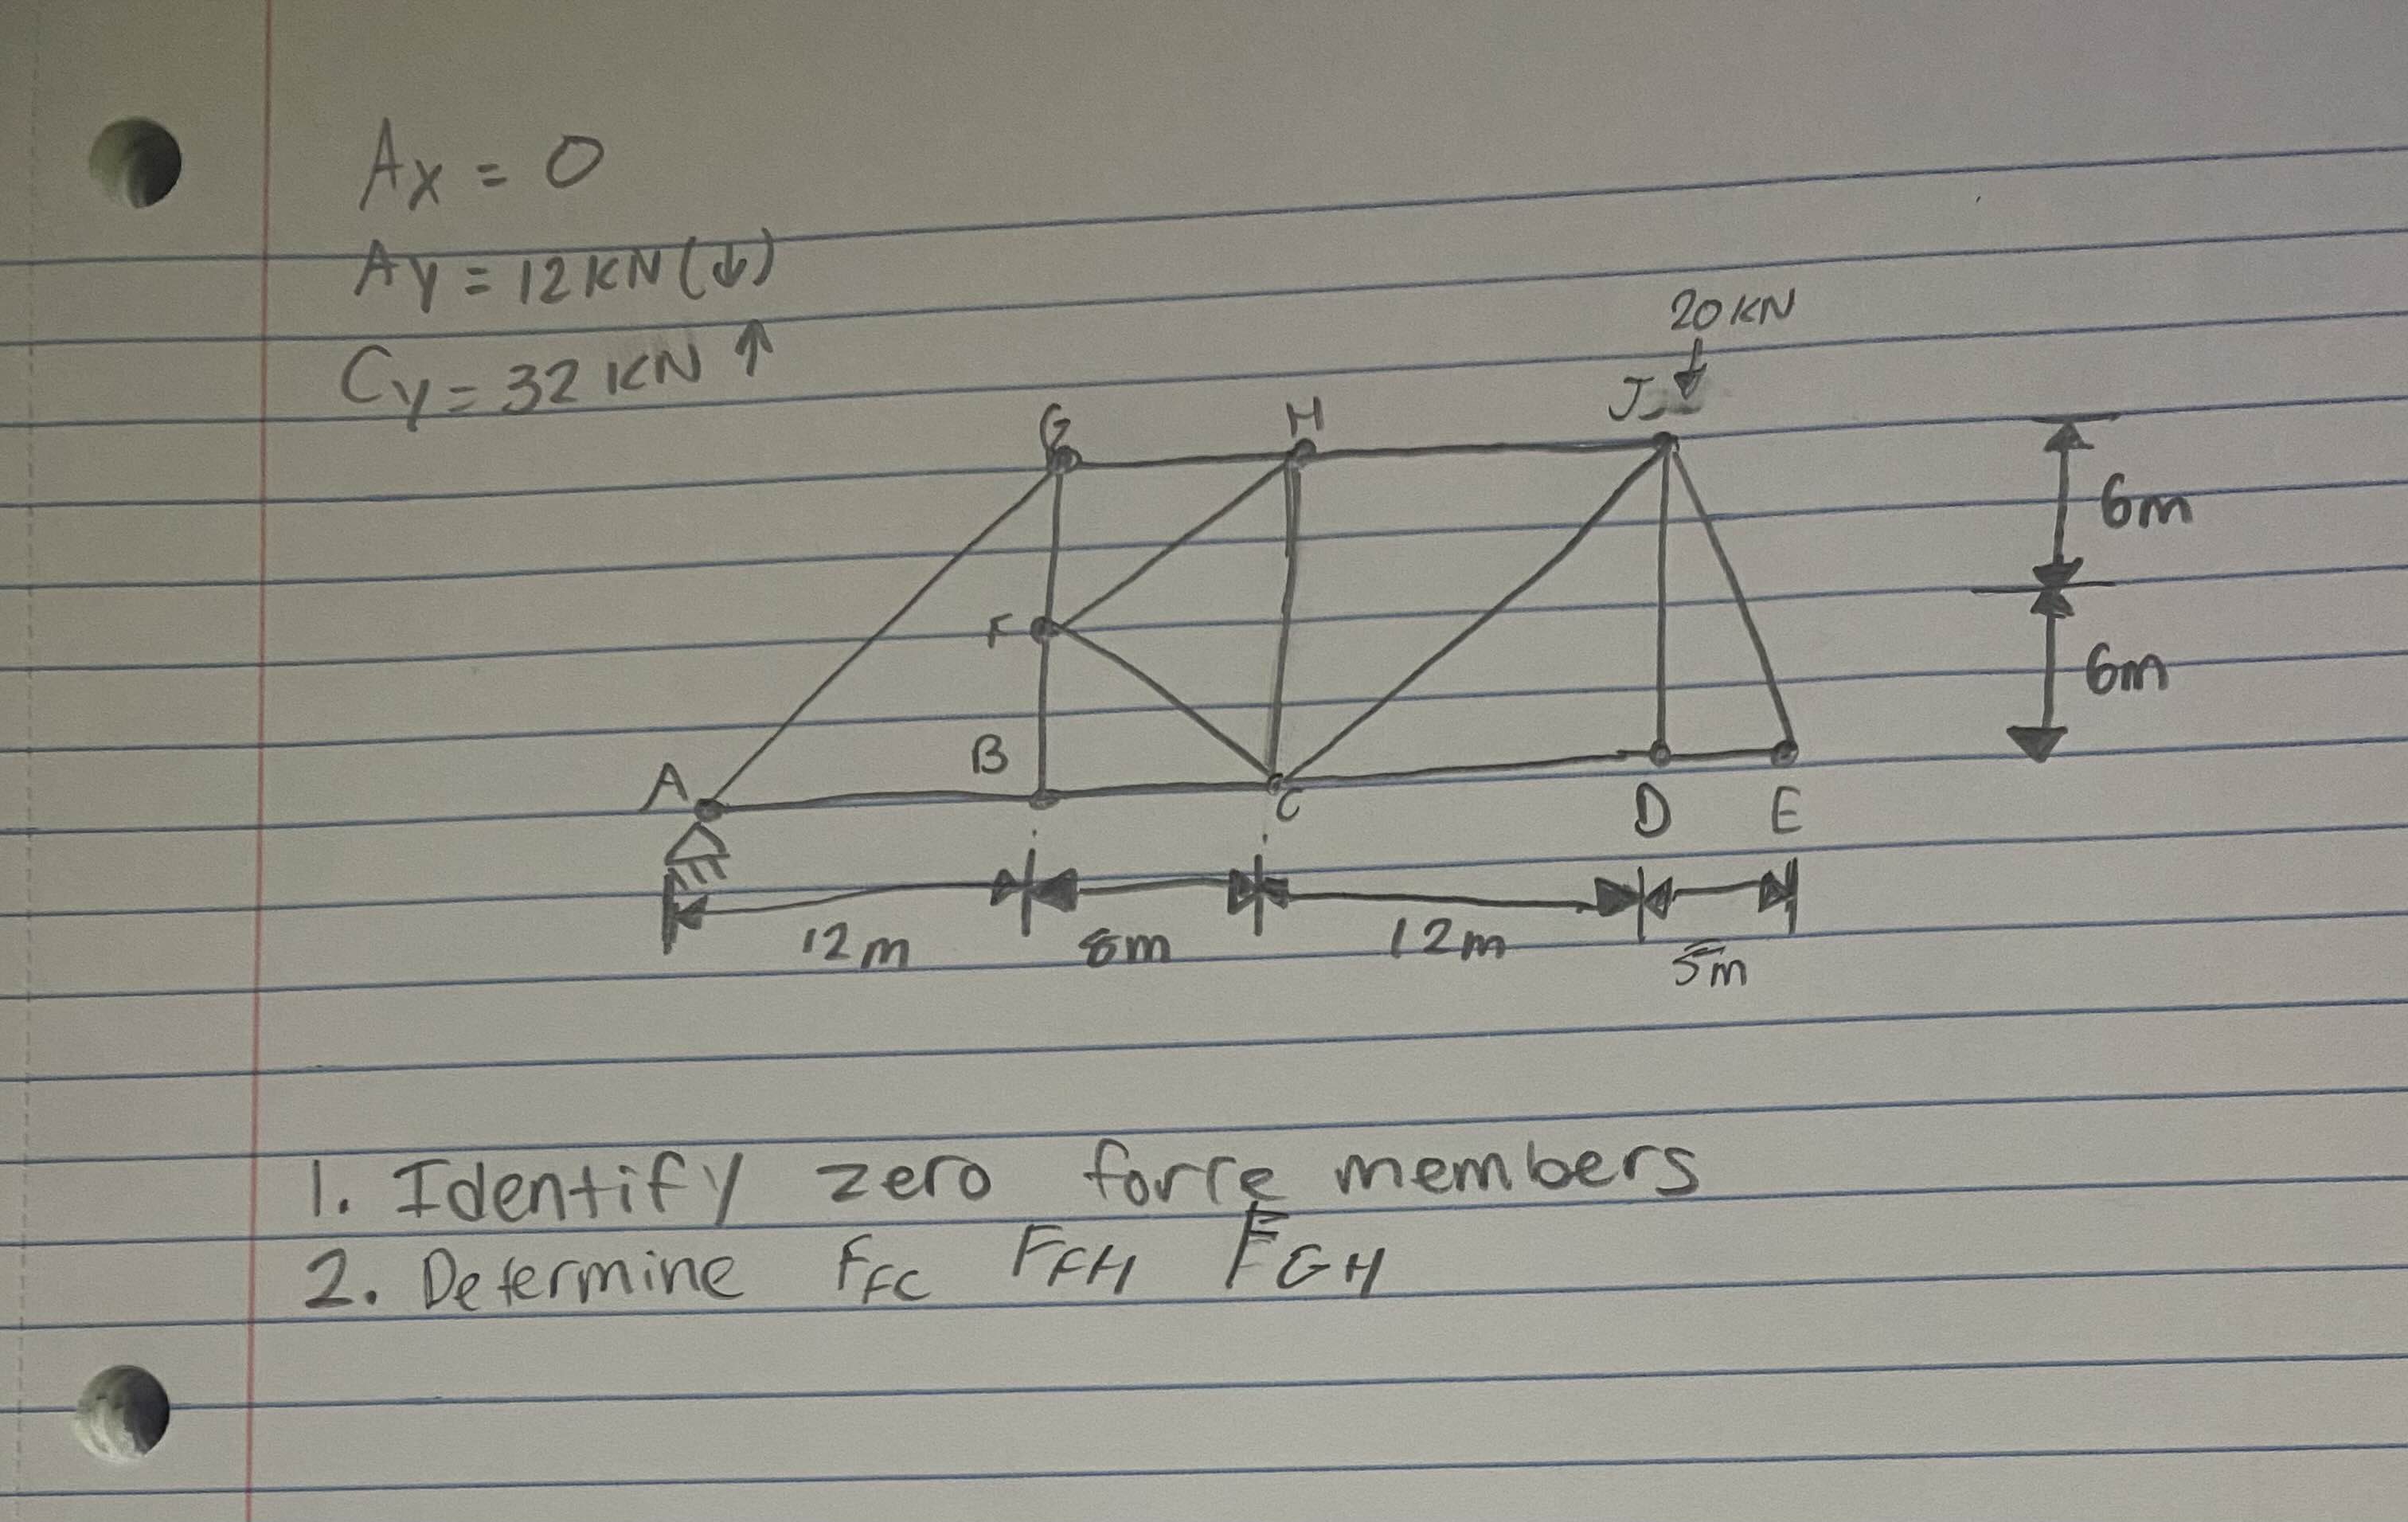 Ax = 0
Ay = 12 KN (↓)
Cy = 32 KN ↑
20 KN
J
G H
6m
F
6m
B
A
C D E
12m 8m 12m 5m
1. Identify zero force members
2. Determine FFC FFH FGH